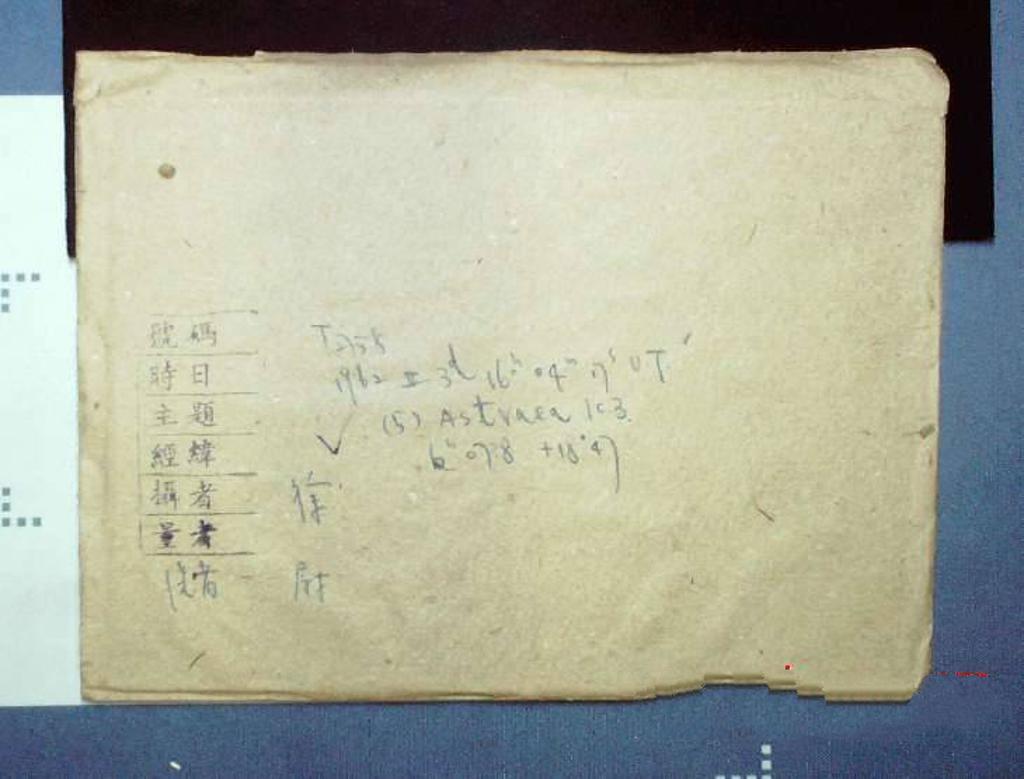 號碼 T2755
時日 1962 II 3d 16h 04m 17s UT
主題 (5) Astraea 1c3.
經緯 6h 07.8 +18°47
攝者 徐
量者
洗者 尉